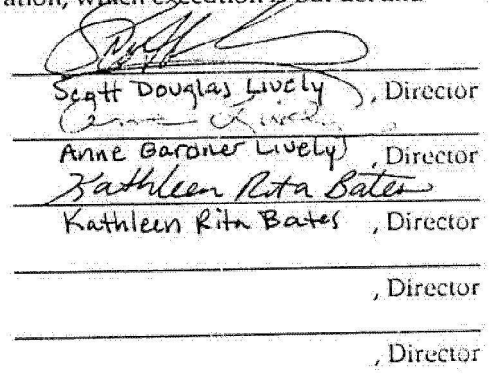 ation, which execution is our act and
Scott Douglas Lively , Director
Anne Lively
Anne Gardner Lively , Director
Kathleen Rita Bates
Kathleen Rita Bates , Director
, Director
, Director